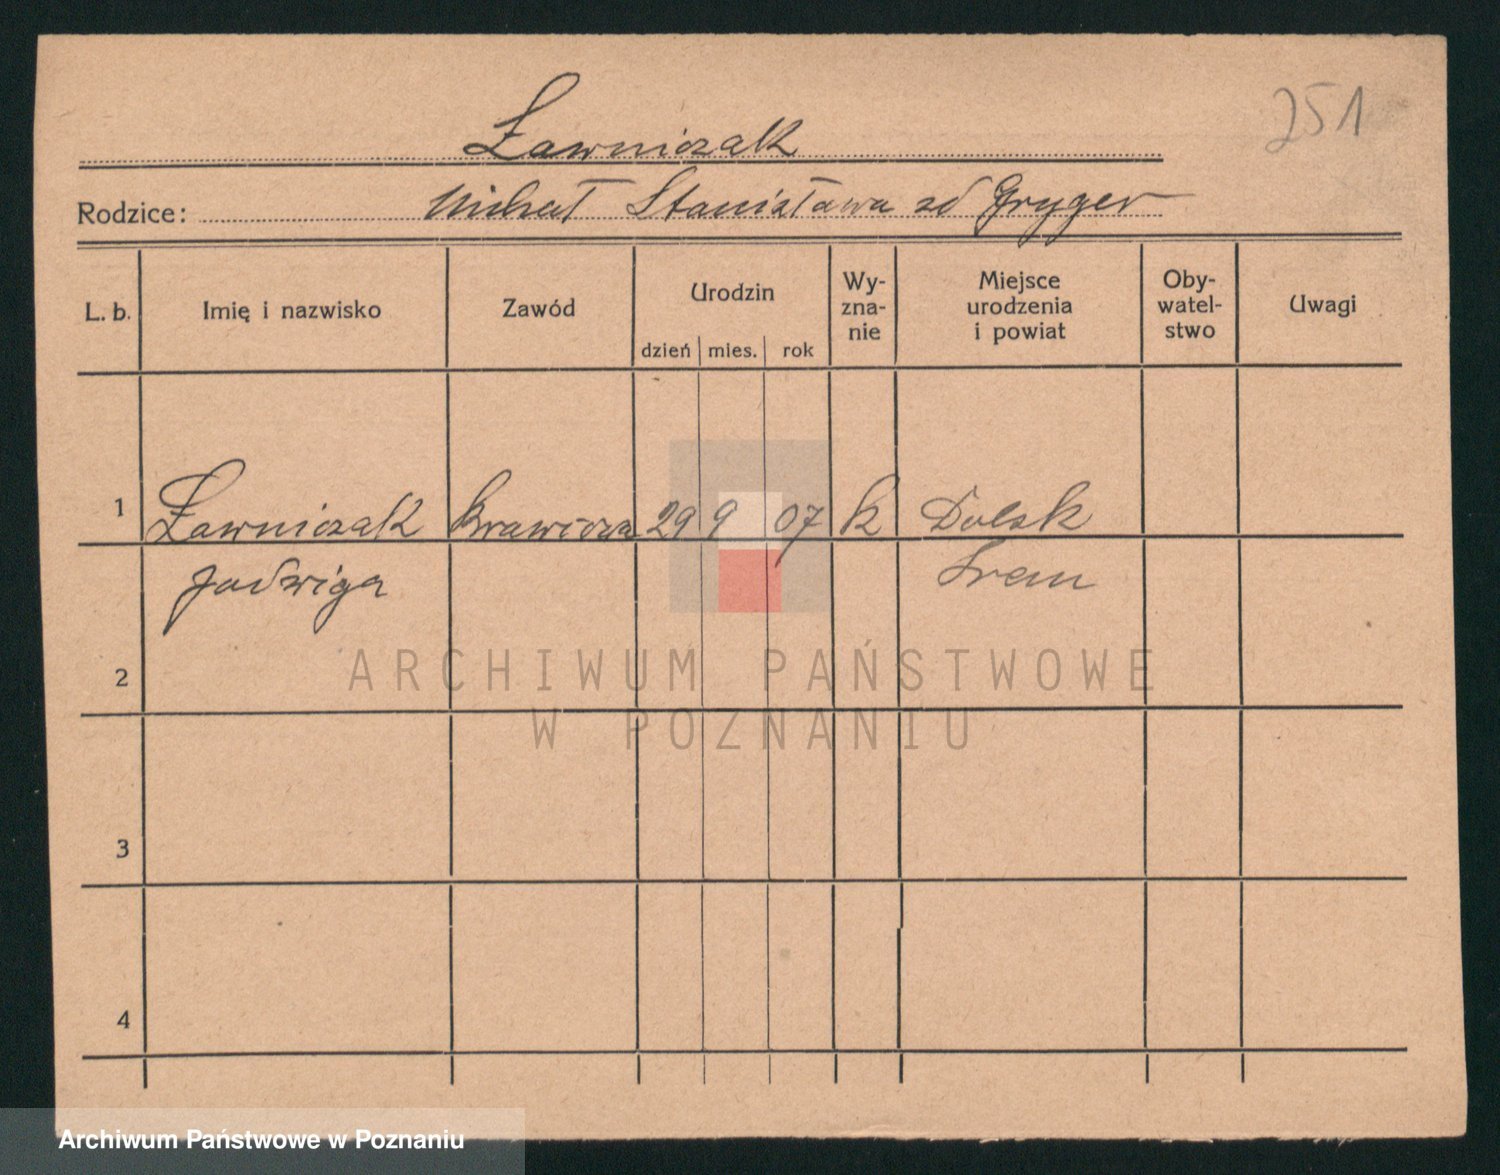 251
Ławniczak
Rodzice: Michał Stanisława zd Gryger
L. b. Imię i nazwisko Zawód Urodzin Wy-zna-nie Miejsce urodzenia i powiat Oby-watel-stwo Uwagi
dzień mies. rok
1 Ławniczak Krawcowa 29 9 07 k Dolsk
Jadwiga Śrem
2
3
4
ARCHIWUM PAŃSTWOWE
W POZNANIU
Archiwum Państwowe w Poznaniu